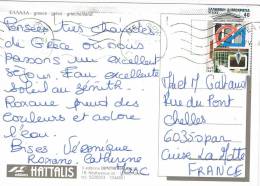 ΕΛΛΑΔΑ - greece - grèce - griechenland
Pensées très chaudes
de Grèce où nous
passons un excellent
séjour. Eau excellente
soleil au zénith...
Roxane prend des
couleurs et adore
l'eau.
Bises. Véronique
Roxane. Catherine
Marc
HATTALIS
ΕΛΛΗΝΙΚΗ ΔΗΜΟΚΡΑΤΙΑ
40
et M
Rue du Pont
Chelles
60350 par
Cuise La Motte
FRANCE